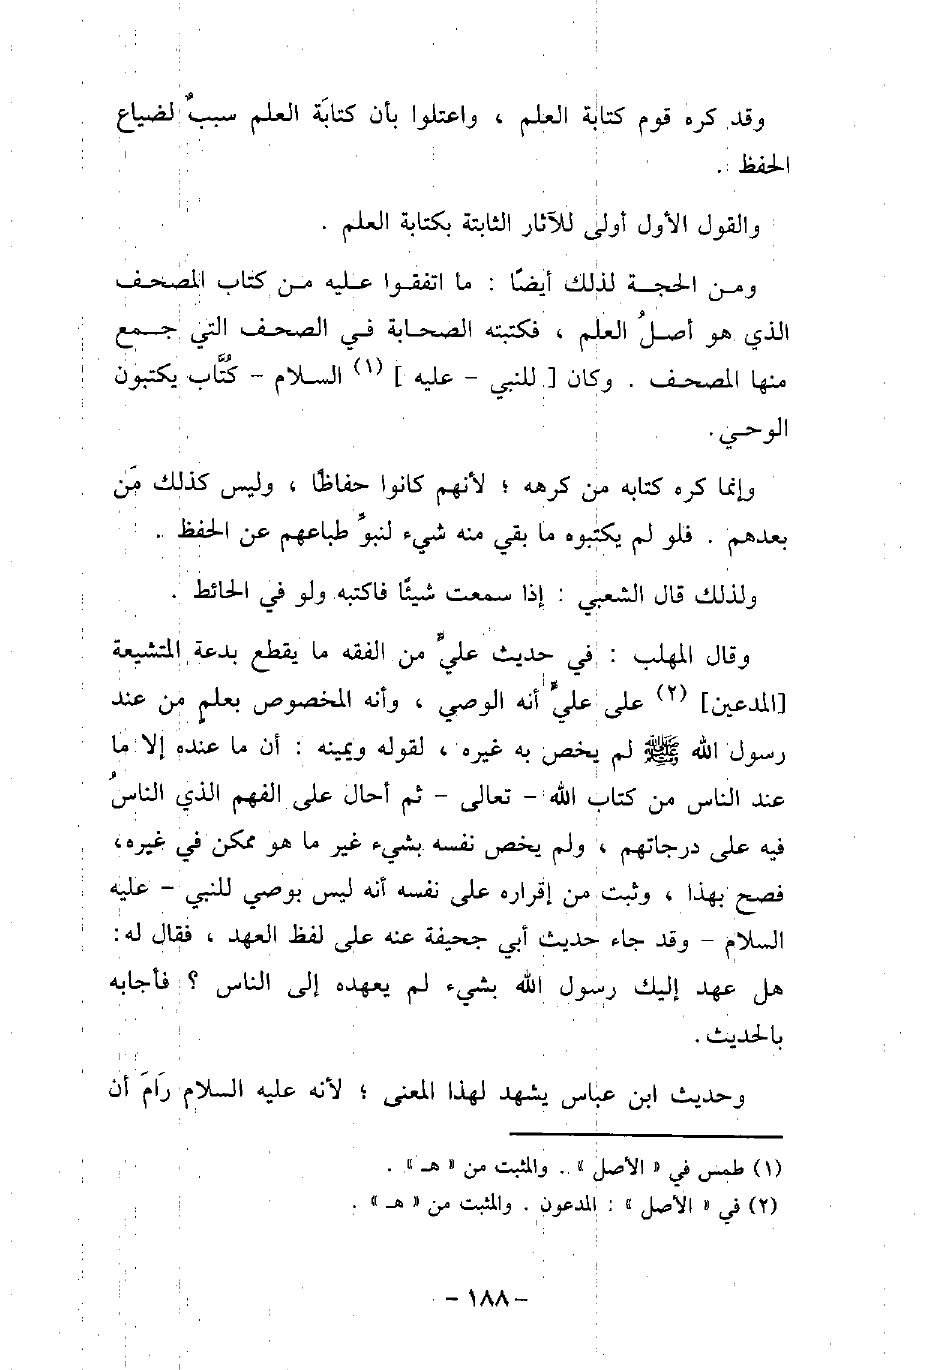 وقد كره قوم كتابة العلم ، واعتلوا بأن كتابَة العلم سببٌ لضياع
الحفظ .
والقول الأول أولى للآثار الثابتة بكتابة العلم .
ومن الحجة لذلك أيضًا : ما اتفقوا عليه من كتاب المصحف
الذي هو أصلُ العلم ، فكتبته الصحابة في الصحف التي جمع
منها المصحف . وكان [ للنبي - عليه ] (١) السلام - كُتَّاب يكتبون
الوحي.
وإنما كره كتابه من كرهه ؛ لأنهم كانوا حفاظًا ، وليس كذلك مَن
بعدهم . فلو لم يكتبوه ما بقي منه شيء لنبوِّ طباعهم عن الحفظ .
ولذلك قال الشعبي : إذا سمعت شيئًا فاكتبه ولو في الحائط .
وقال المهلب : في حديث عليٍّ من الفقه ما يقطع بدعة المتشيعة
[المدعين] (٢) على عليٍّ أنه الوصي ، وأنه المخصوص بعلمٍ من عند
رسول الله ﷺ لم يخص به غيره ، لقوله ويمينه : أن ما عنده إلا ما
عند الناس من كتاب الله - تعالى - ثم أحال على الفهم الذي الناسُ
فيه على درجاتهم ، ولم يخص نفسه بشيء غير ما هو ممكن في غيره،
فصح بهذا ، وثبت من إقراره على نفسه أنه ليس بوصي للنبي - عليه
السلام - وقد جاء حديث أبي جحيفة عنه على لفظ العهد ، فقال له:
هل عهد إليك رسول الله بشيء لم يعهده إلى الناس ؟ فأجابه
بالحديث .
وحديث ابن عباس يشهد لهذا المعنى ؛ لأنه عليه السلام رَامَ أن
(١) طمس في « الأصل » . والمثبت من « هـ » .
(٢) في « الأصل » : المدعون . والمثبت من « هـ » .
- ١٨٨ -